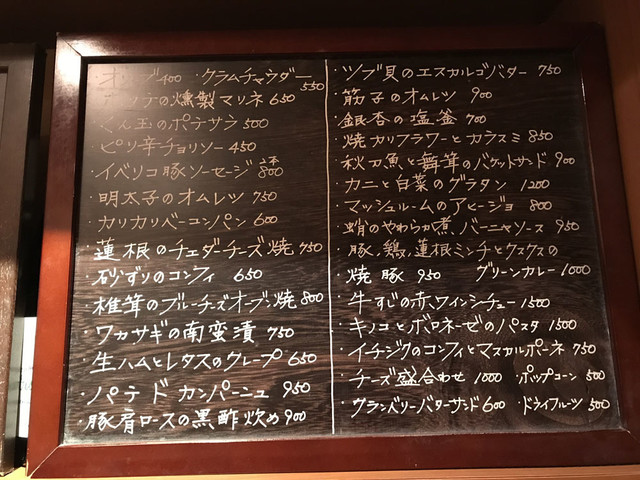 400 ・クラムチャウダー 550
の燻製マリネ 650
くん玉のポテサラ 500
・ピリ辛チョリソー 450
・イベリコ豚ソーセージ 2本 800
・明太子のオムレツ 750
・カリカリベーコンパン 600
・蓮根のチェダーチーズ焼 750
・砂ずりのコンフィ 650
・椎茸のブルーチーズオーブン焼 800
・ワカサギの南蛮漬 750
・生ハムとレタスのクレープ 650
・パテドカンパーニュ 950
・豚肩ロースの黒酢炊め 900
・ツブ貝のエスカルゴバター 750
・筋子のオムレツ 900
・銀杏の塩釜 700
・焼カリフラワーとカラスミ 850
・秋刀魚と舞茸のバケットサンド 900
・カニと白菜のグラタン 1200
・マッシュルームのアヒージョ 800
・蛸のやわらか煮、バーニャソース 950
・豚、鶏、蓮根ミンチとクスクスの
・焼豚 950 グリーンカレー 1000
・牛すじの赤ワインシチュー 1500
・キノコとボロネーゼのパスタ 1500
・イチジクのコンフィとマスカルポーネ 750
・チーズ盛合わせ 1000 ・ポップコーン 500
・クランベリーバターサンド 600 ・ドライフルーツ 500